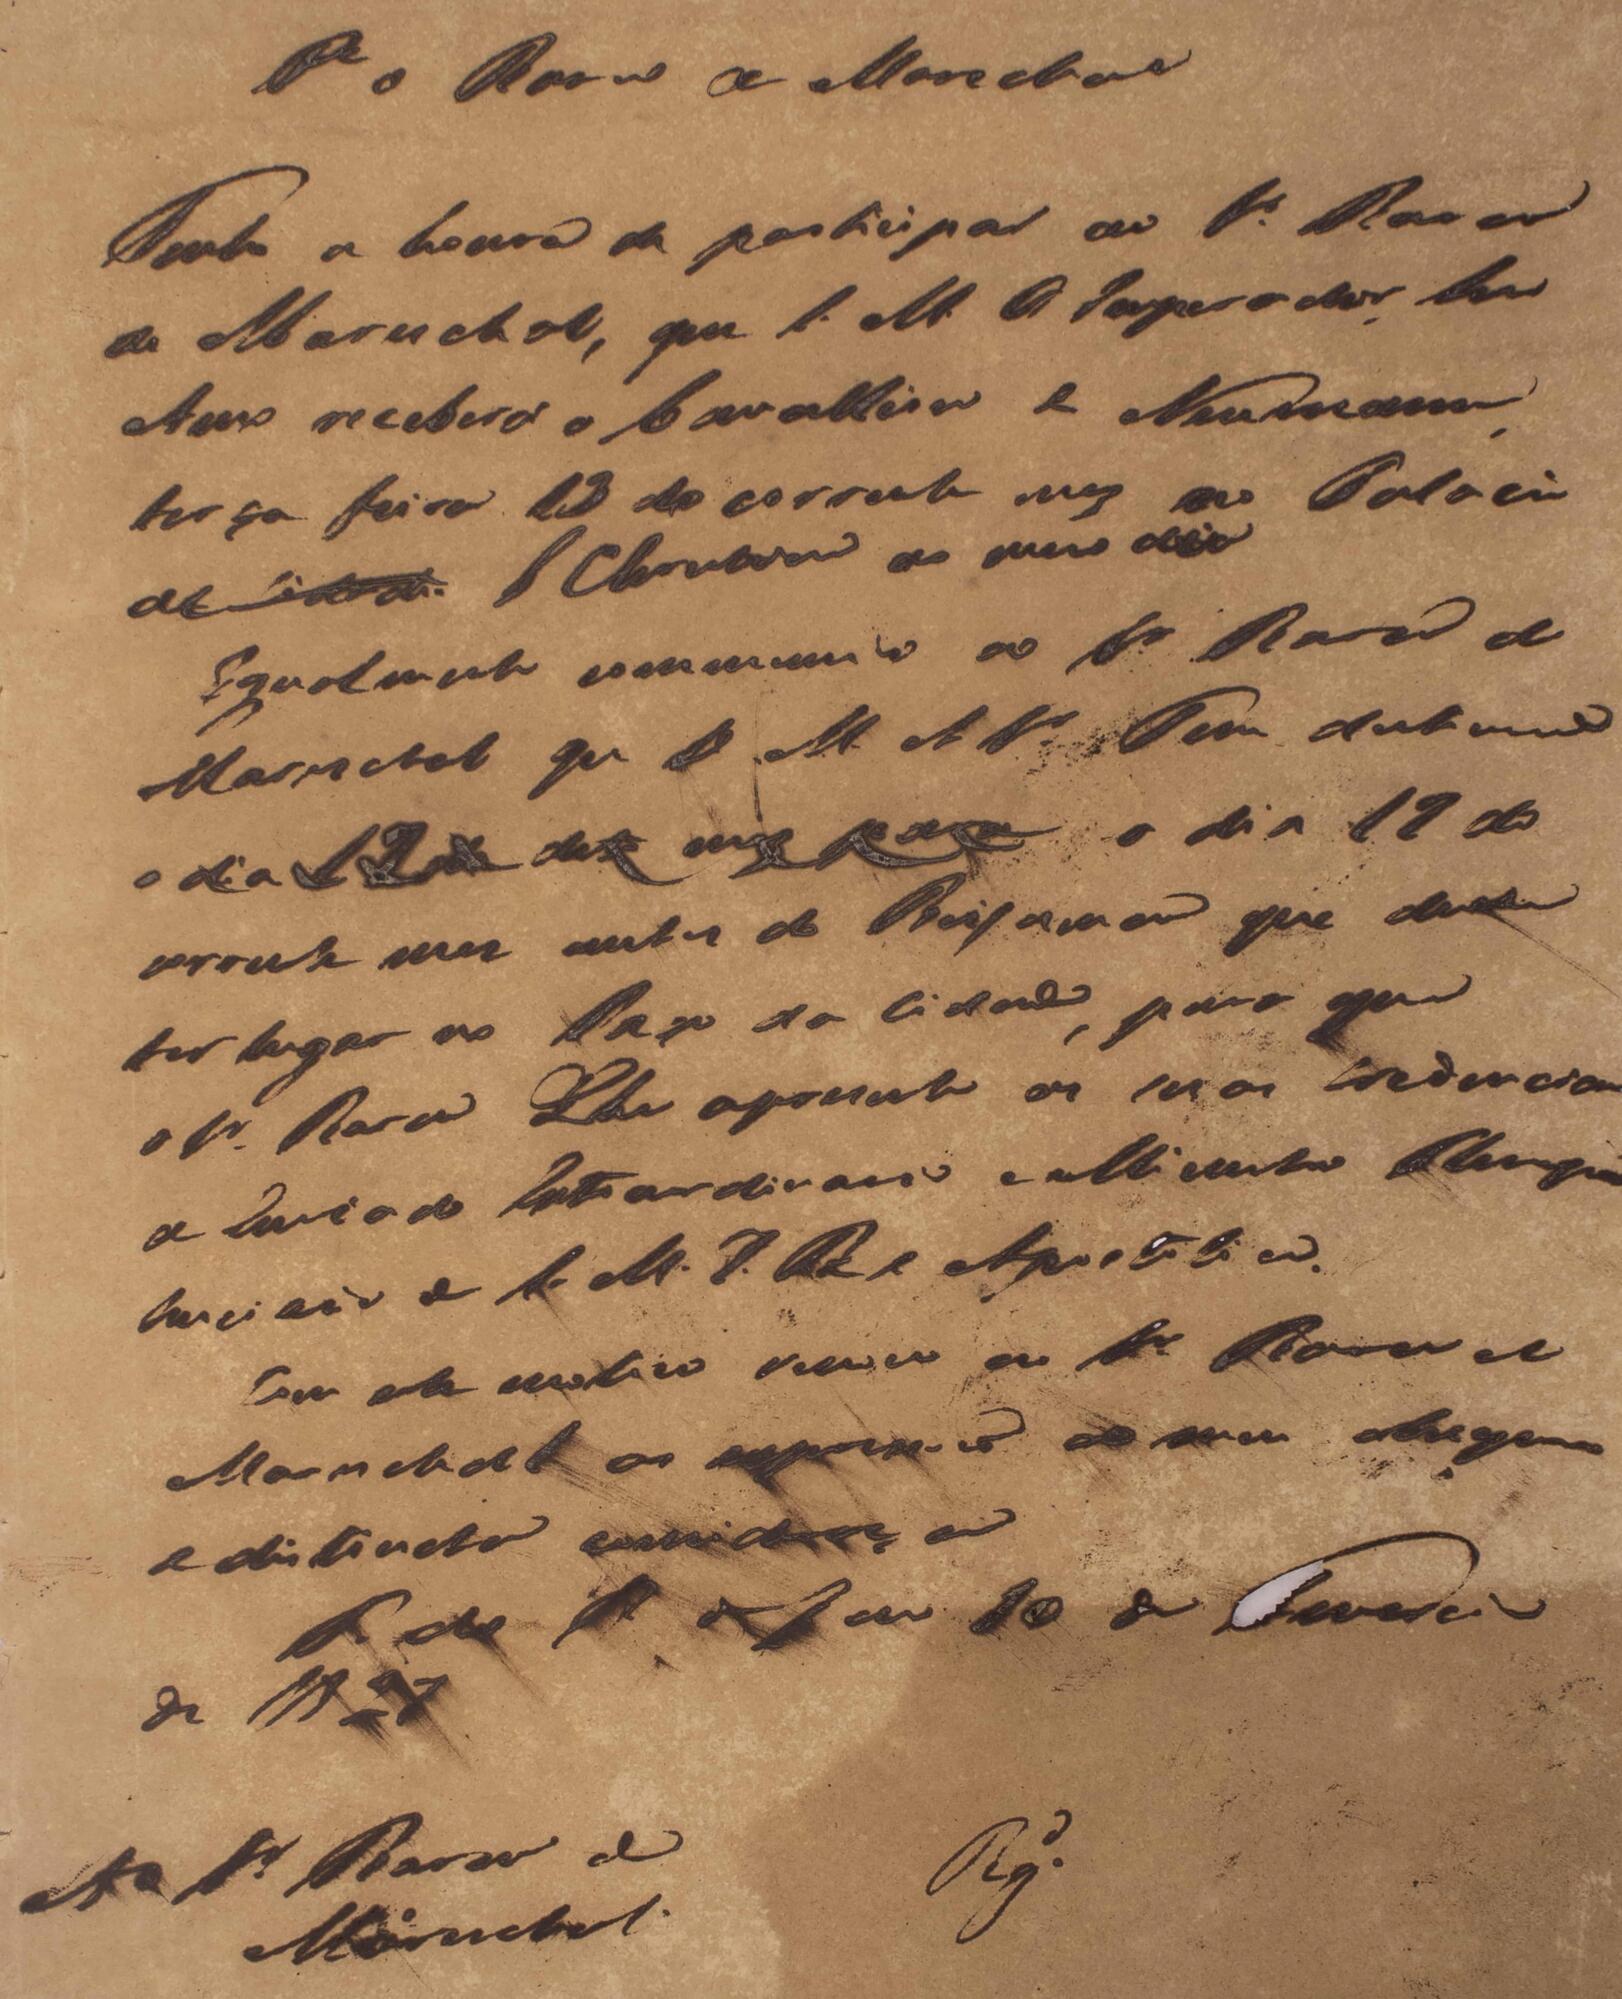 Pª o Barão de Mareschal
Tenho a honra de participar ao Sr. Barão
de Mareschal, que S. M. O Imperador, seu
Amo receberá o Cavalleiro de Neumann,
terça feira 13 do corrente mez no Palacio
de S Christovão ao meio dia
Igualmente communico ao Sr Barão de
Mareschal que S. M. O Sr. Tem destinado
o dia o dia 12 do
corrente mez antes do Beijamão que deve
ter lugar no Paço da Cidade, para que
o Sr. Barão Lhe apresente as suas credenciaes
de Enviado Extraordinario e Ministro Plenipo
tenciario de S. M. I. R. e Apostolica.
Com este motivo renovo ao Sr. Barão de
Mareschal as expressões do meu obsequio
e distincta consideração
P. do R. de Janº em 10 de Fevereiro
de 1827
Ao Sr Barão de
Mareschal.